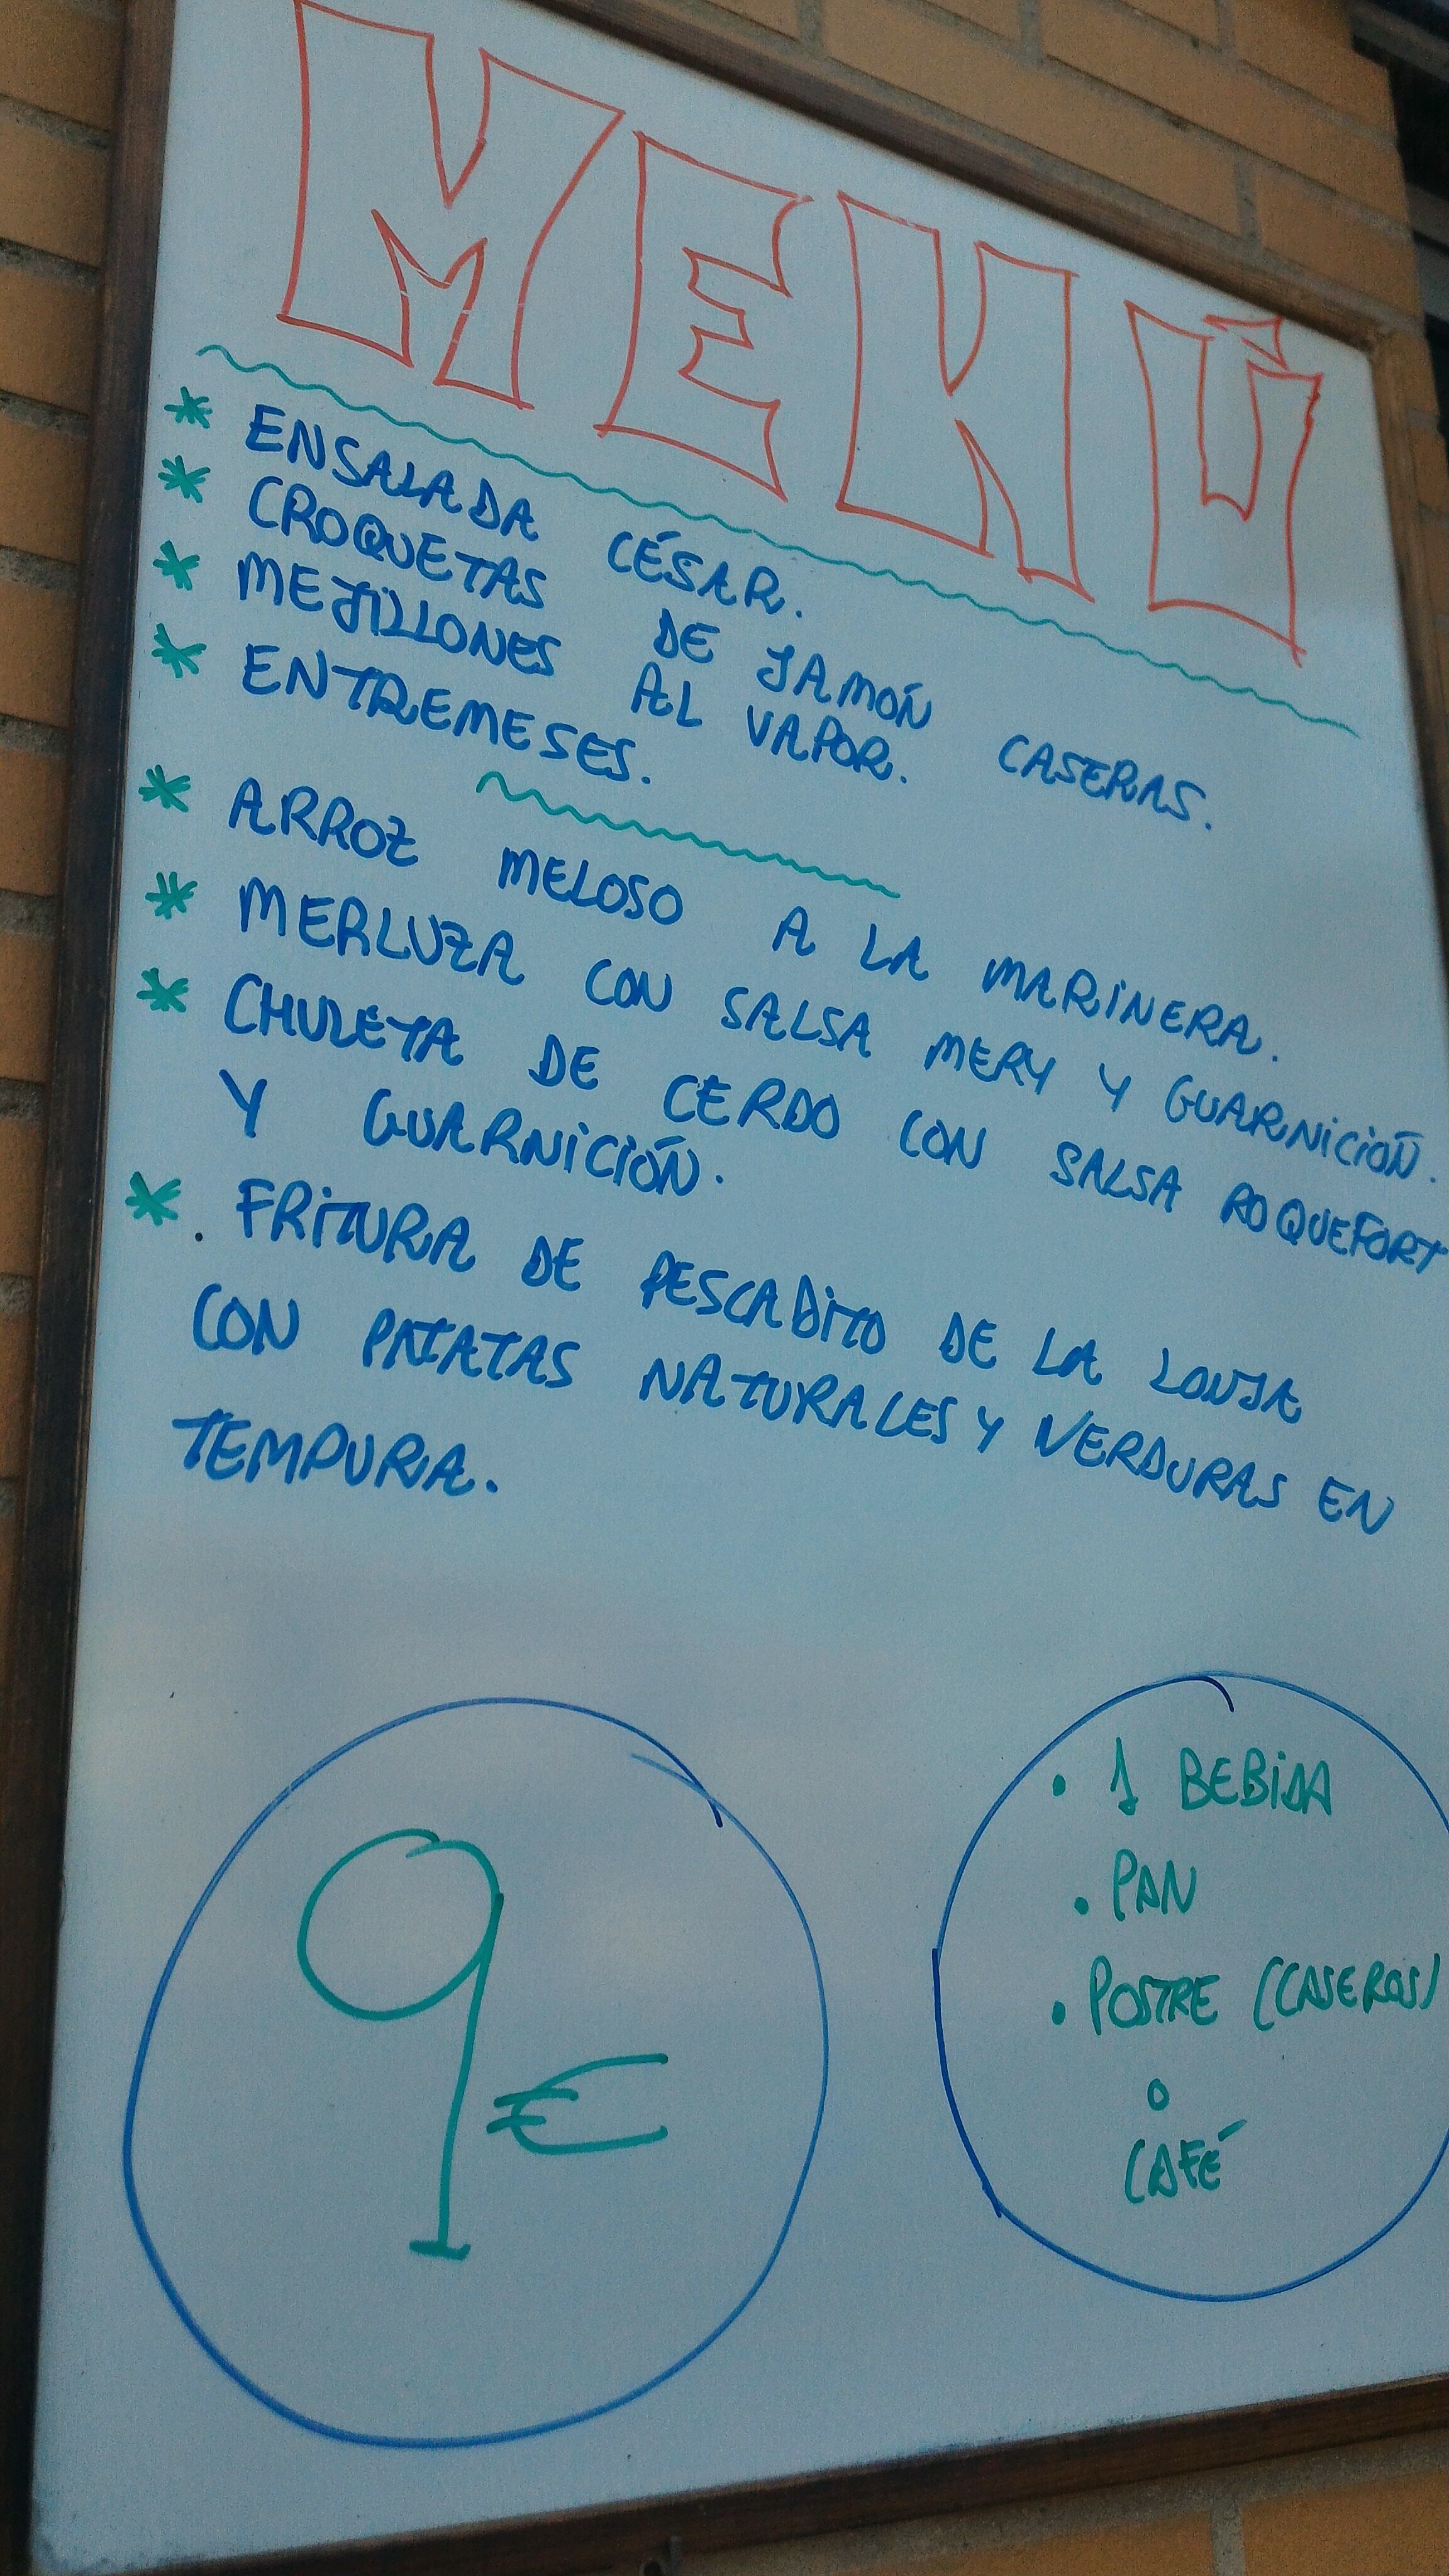 MENÚ
* ENSALADA CÉSAR.
* CROQUETAS DE JAMÓN CASERAS.
* MEJILLONES AL VAPOR.
* ENTREMESES.
* ARROZ MELOSO A LA MARINERA.
* MERLUZA CON SALSA MERY Y GUARNICIÓN.
* CHULETA DE CERDO CON SALSA ROQUEFORT
Y GUARNICIÓN.
* . FRITURA DE PESCADITO DE LA LONJA
CON PATATAS NATURALES Y VERDURAS EN
TEMPURA.
9€
• 1 BEBIDA
• PAN
• POSTRE (CASEROS)
O
CAFÉ